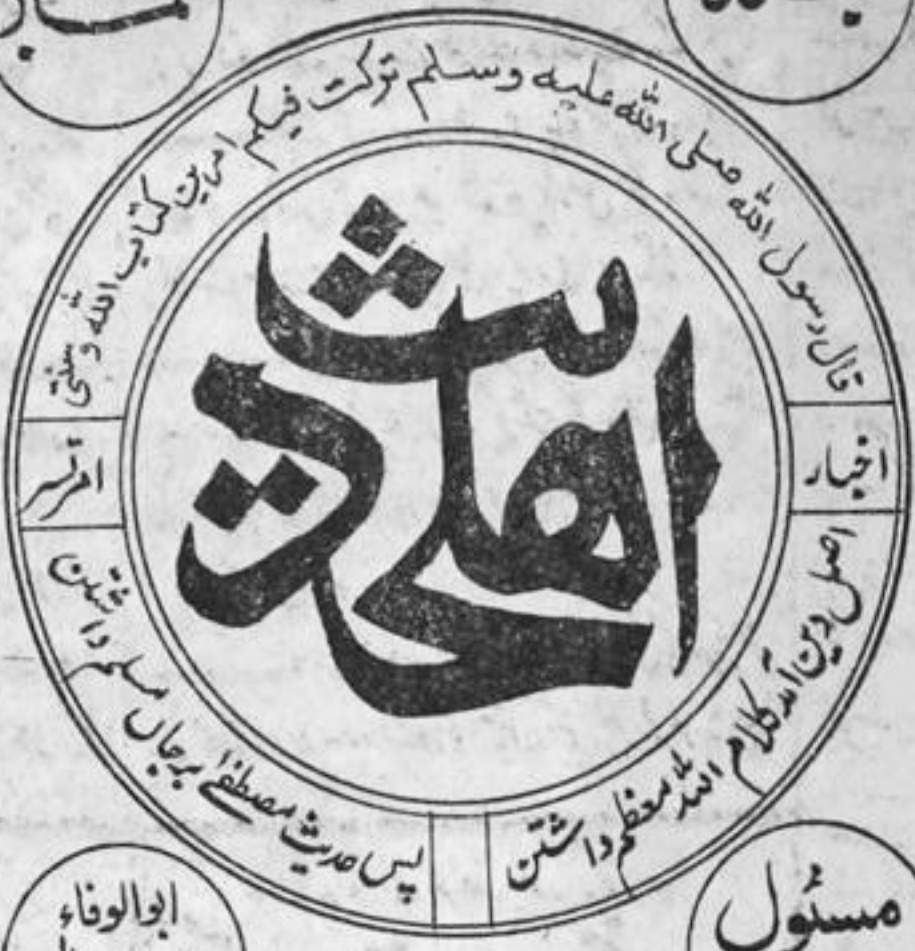 قال رسول الله صلى الله عليه وسلم تركت فيكم امرين كتاب الله وسنتي
اخبار
اهلحدیث
امرتسر
اصل دین آمد کلام اللہ معظم داشتن
پس حدیث مصطفےٰ برجاں مسلم داشتن
مسئول
ابوالوفاء